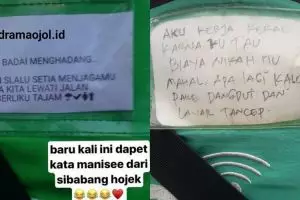 dramaojol.id
BADAI MENGHADANG...
SLALU SETIA MENJAGAMU
KITA LEWATI JALAN
BERLIKU TAJAM
baru kali ini dapet
kata manisee dari
sibabang hojek
😂😂😂❤️
AKU KERJA KERAS
KARNA KU TAU
BIAYA NIKAH MU
MAHAL APA LAGI KALO
PAKE DANGDUT DAN
LAYAR TANCEP